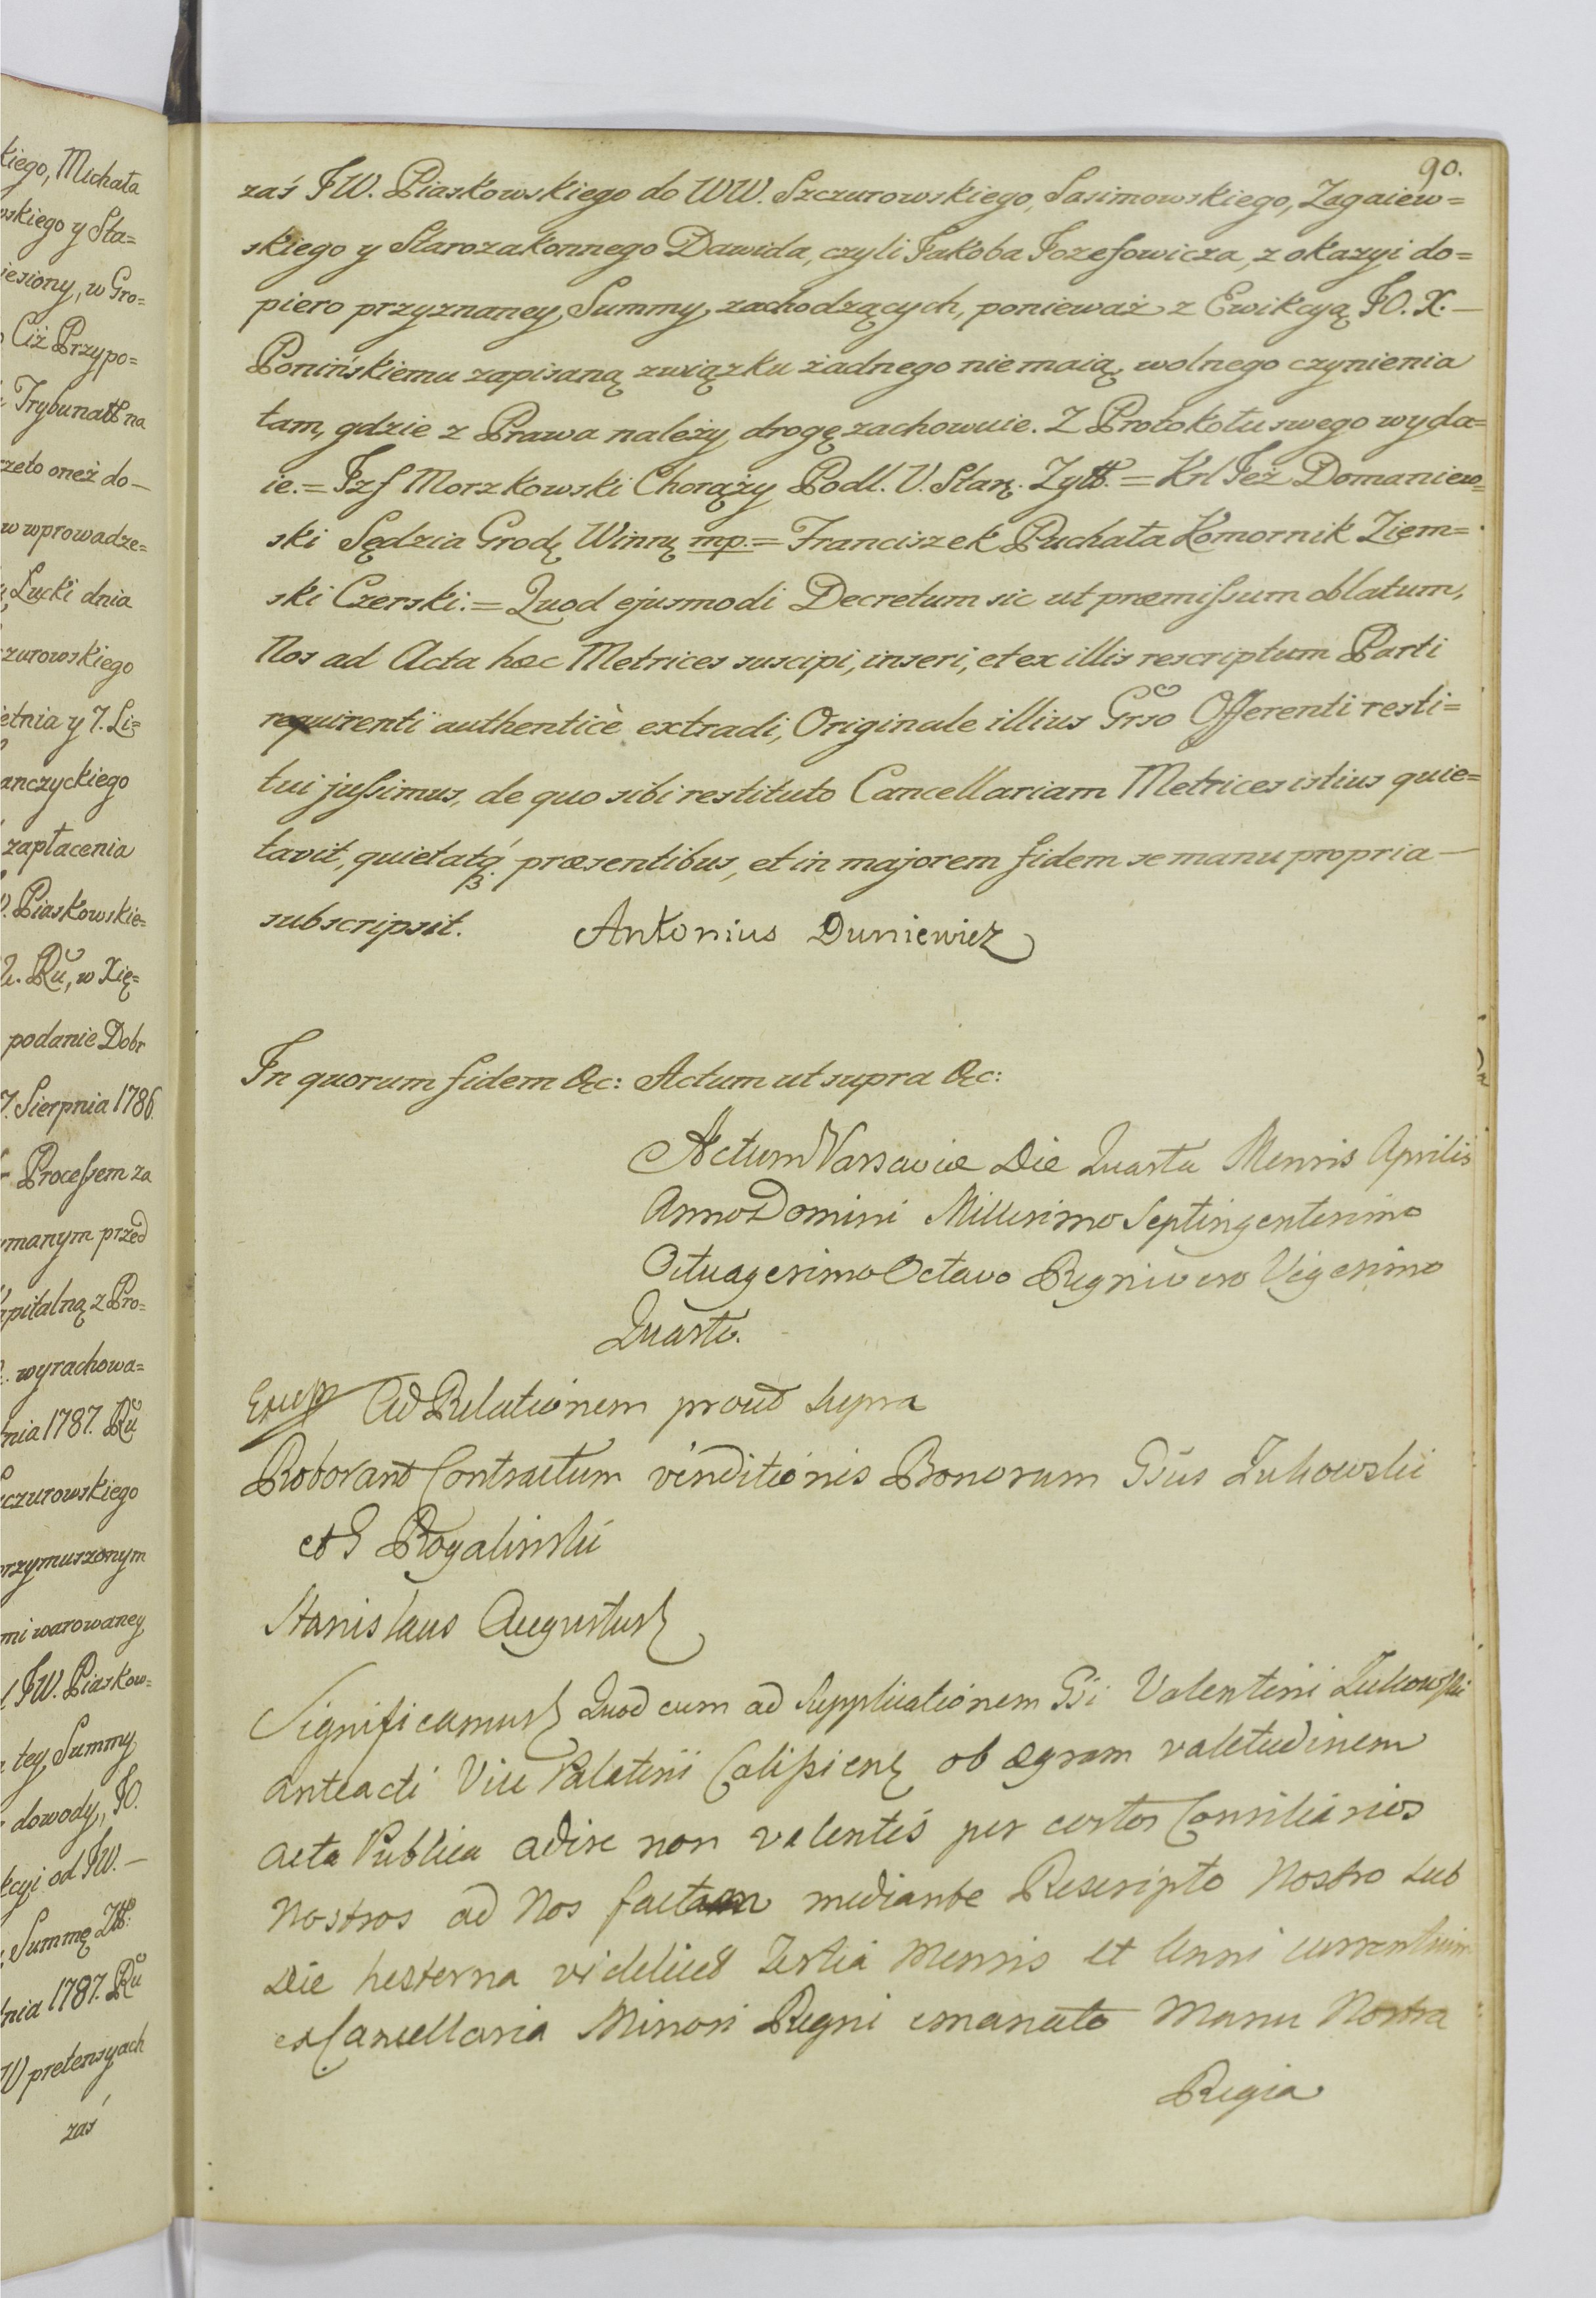 kiego, Michała
wskiego y Sta=
iesiony, w Gro=
Ciż Przypo=
Trybunałł na
rzeto oneż do—
w wprowadze=
Łucki dnia
zurowskiego
etnia y 7. Li=
anczyckiego
zapłacenia
Piaskowskie=
Ru, w Xię=
podanie Dobr
7. Sierpnia 1786.
Processem za
manym przed
apitalną z Pro=
wyrachowa=
nia 1787. Ru
czurowskiego
przymuszonym
mi warowaney
JW. Piaskow=
tey Summy
dowody, JO.
kcyi od JW.—
Summę Złł:
nia 1787. Ru
W pretensyach
zaś
90.
zaś JW. Piaskowskiego do WW. Szczurowskiego, Sasimowskiego, Zagaiew=
skiego y Starozakonnego Dawida, czyli Jakoba Jozefowicza, z okazyi do=
piero przyznaney Summy, zachodzących, ponieważ z Ewikcyą JO. X.—
Ponińskiemu zapisaną związku żadnego nie maią, wolnego czynienia
tam, gdzie z Prawa należy, drogę zachowuie. Z Protokołu swego wyda=
ie.= Jzf Morzkowski Chorąży Podl. V. Starę. Zytt.= Krl Jeż Domaniew=
ski Sędzia Grodę Winnę mp.= Franciszek Puchała Komornik Ziem=
ski Czerski.= Quod ejusmodi Decretum sic ut præmissum oblatum,
Nos ad Acta hæc Metrices suscipi, inseri, et ex illis rescriptum Parti
requirenti authenticè extradi, Originale illius Grso Offerenti resti=
tui jussimus, de quo sibi restituto Cancellariam Metrices istius quie=
tavit, quietatq́ præsentibus, et in majorem fidem se manu propria—
subscripsit. Antonius Duniewicz
In quorum fidem &c: Actum ut supra &c:
Actum Varsaviæ Die Quarta Mensis Aprilis
Anno Domini Millesimo Septingentesimo
Octuagesimo Octavo Regni vero Vigesimo
Quarto.
Ad Relationem prout supra
Roborant Contractum venditionis Bonorum Gsus Zukowski
et G Rogalinski
Stanislaus Augustus
Significamus Quod cum ad Supplicationem Gsi Valentini Zukowski
anteacti Vice Palatini Calissienę ob ægram valetudinem
acta Publica adire non valentis per certos Consiliarios
Nostros ad Nos factam mediante Rescripto Nostro sub
Die hesterna videlicet Tertia Mensis et Anni currentium
ex Cancellaria Minori Regni emanato Manu Nostra
Regia